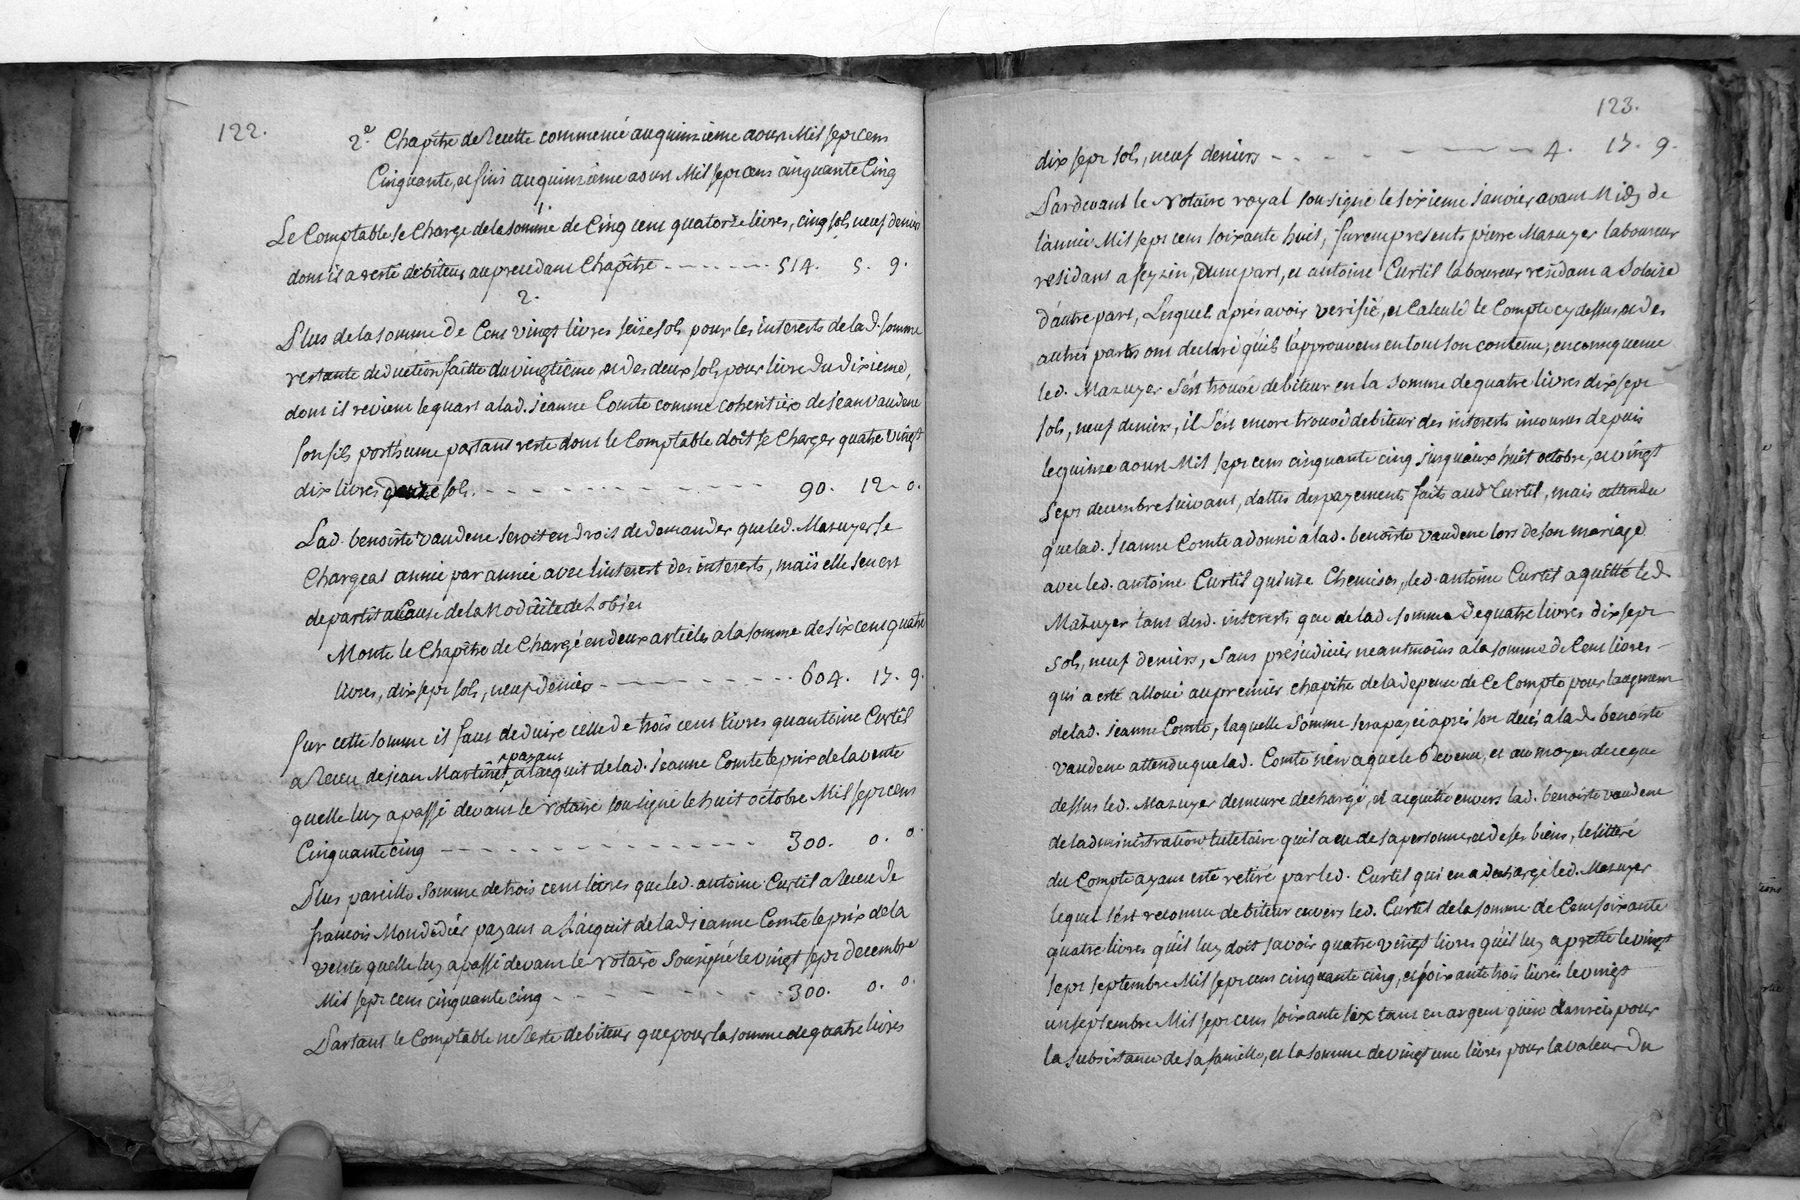 122.
2e Chapître de Recette commencé au quinzieme aoust Mil sept cens
Cinquante, et fini au quinzieme aoust Mil sept cens cinquante Cinq
1.
Le Comptable se Charge de la somme de Cinq cent quatorze livres, cinq sols neuf deniers
dont il a resté débiteur au precedant Chapître - - - - - - - 514. 5. 9.
2.
Plus de la somme de Cent vingt livres seize sols pour les interests de lad. somme
restante deduction faitte du vingtieme, et des deux sols pour livre du dixieme,
dont il revient le quart a lad. jeanne Comte comme coheritiere de jean vaudene
son fils posthume partant reste dont le Comptable doit se Charger quatre vingt
dix livres douze sols. - - - - - - - - - - 90. 12. 0.
Lad. benoîte vaudene seroit en droit de demander que led. Mazuyer se
Chargeat année par année avec l'interest des interests, mais elle s'en est
departit a Cause de la modicité de l'objet
Monte le Chapître de Chargé en deux articles a la somme de six cent quatre
livres, dix sept sols, neuf deniers - - - - - - - - - 604. 17. 9.
sur cette somme il faut deduire celle de trois cent livres qu'antoine Curtil
a Receu de jean Martinet payant a l'acquit de lad. jeanne Comte le prix de la vente
quelle luy a passé devant le Notaire soussigné le huit octobre Mil sept cens
Cinquante cinq - - - - - - - - - - - - - 300. 0. 0.
Plus pareille somme de trois cent livres que led. antoine Curtil a Receu de
francois Mondidier payant a L'acquit de lad jeanne Comte le prix de la
vente quelle luy a passé devant le Notaire Sousigné le vingt sept decembre
Mil sept cens cinquante cinq - - - - - - - - - 300. 0. 0.
Partant le Comptable ne Reste debiteur que pour la somme de quatre livres
123.
dix sept sols, neuf deniers - - - - - - - - 4. 17. 9.
Pardevant le Notaire royal sousigné le sixieme janvier avant Midy de
l'année Mil sept cens soixante huit, furent presents pierre Mazuyer laboureur
residant a feyzin, d'une part, et antoine Curtil laboureur residant a Solaize
d'autre part, Lesquels aprés avoir verifié, et Calculé le Compte cy dessus, et des
autres parts ont declaré qu'ils l'approuvent en tout son contenu, en consequence
led. Mazuyer s'est trouvé debiteur en la somme de quatre livres dix sept
sols, neuf deniers, il s'est encore trouvé debiteur des interests incourus depuis
le quinze aoust Mil sept cens cinquante cinq jusqu'aux huit octobre, et vingt
sept decembre suivant, dattes des payements faits aud Curtil, mais attendu
que lad. jeanne Comte a donné a lad. benoîte vaudene lors de son mariage
avec led. antoine Curtil quinze Chemises, led. antoine Curtil a quitté led
Mazuyer tant desd. interests que de lad somme de quatre livres dix sept
sols, neuf deniers, sans prejudicier neantmoins a la somme de Cent livres
qui a esté alloué au premier chapitre de la depense de Ce Compte pour l'augment
de lad. jeanne Comte, laquelle somme sera payée aprés son decés a lad. benoîte
vaudene attendu que lad. Comte n'en a que le Revenu, et au moyen de ce que
dessus led. Mazuyer demeure dechargé, et acquitté envers lad. benoîte vaudene
de l'administration tutelaire qu'il a eu de sa personne, et de ses biens, le
du Compte ayant esté retiré par led. Curtil qui en a dechargé led. Mazuyer
lequel s'est reconnu debiteur envers led. Curtil de la somme de Cent soixante
quatre livres qu'il luy doit savoir quatre vingt livres qu'il luy a pretté le vingt
sept septembre Mil sept cens cinquante cinq, et soixante trois livres le vingt
un septembre Mil sept cens soixante six tant en argent qu'en danrées pour
la subsistance de sa famille, et la somme de vingt une livres pour la valeur du